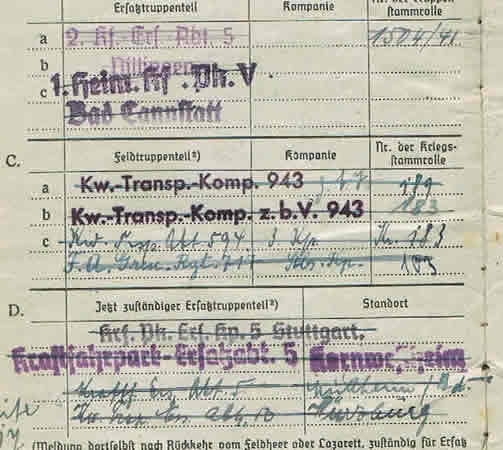 Ersatztruppenteil Kompanie Nr. der Truppen-
stammrolle
a 2. Kf.-Ers. Abt. 5 1504/41
b
c 1. Heim. Kf. Pk. V
Bad Cannstatt
C. Feldtruppenteil²) Kompanie Nr. der Kriegs-
stammrolle
a Kw.-Transp.-Komp. 943 z.b.V. 189
b Kw.-Transp.-Komp. z.b.V. 943 183
c Kw. Trsp. Abt. 594 3 Kp. Nr. 183
F.A. Gren. Rgt. 71 Kp. 183
D. Jetzt zuständiger Ersatztruppenteil³) Standort
Krf. Pk. Ers. Kp. 5 Stuttgart.
Kraftfahrpark-Ersatzabt. 5 Kornwestheim
Kraftf. Ers. Abt. 5 Müllheim/Bd.
Kw. Trsp. Ers. Abtg. Würzburg
(Meldung dortselbst nach Rückkehr vom Feldheer oder Lazarett, zuständig für Ersatz